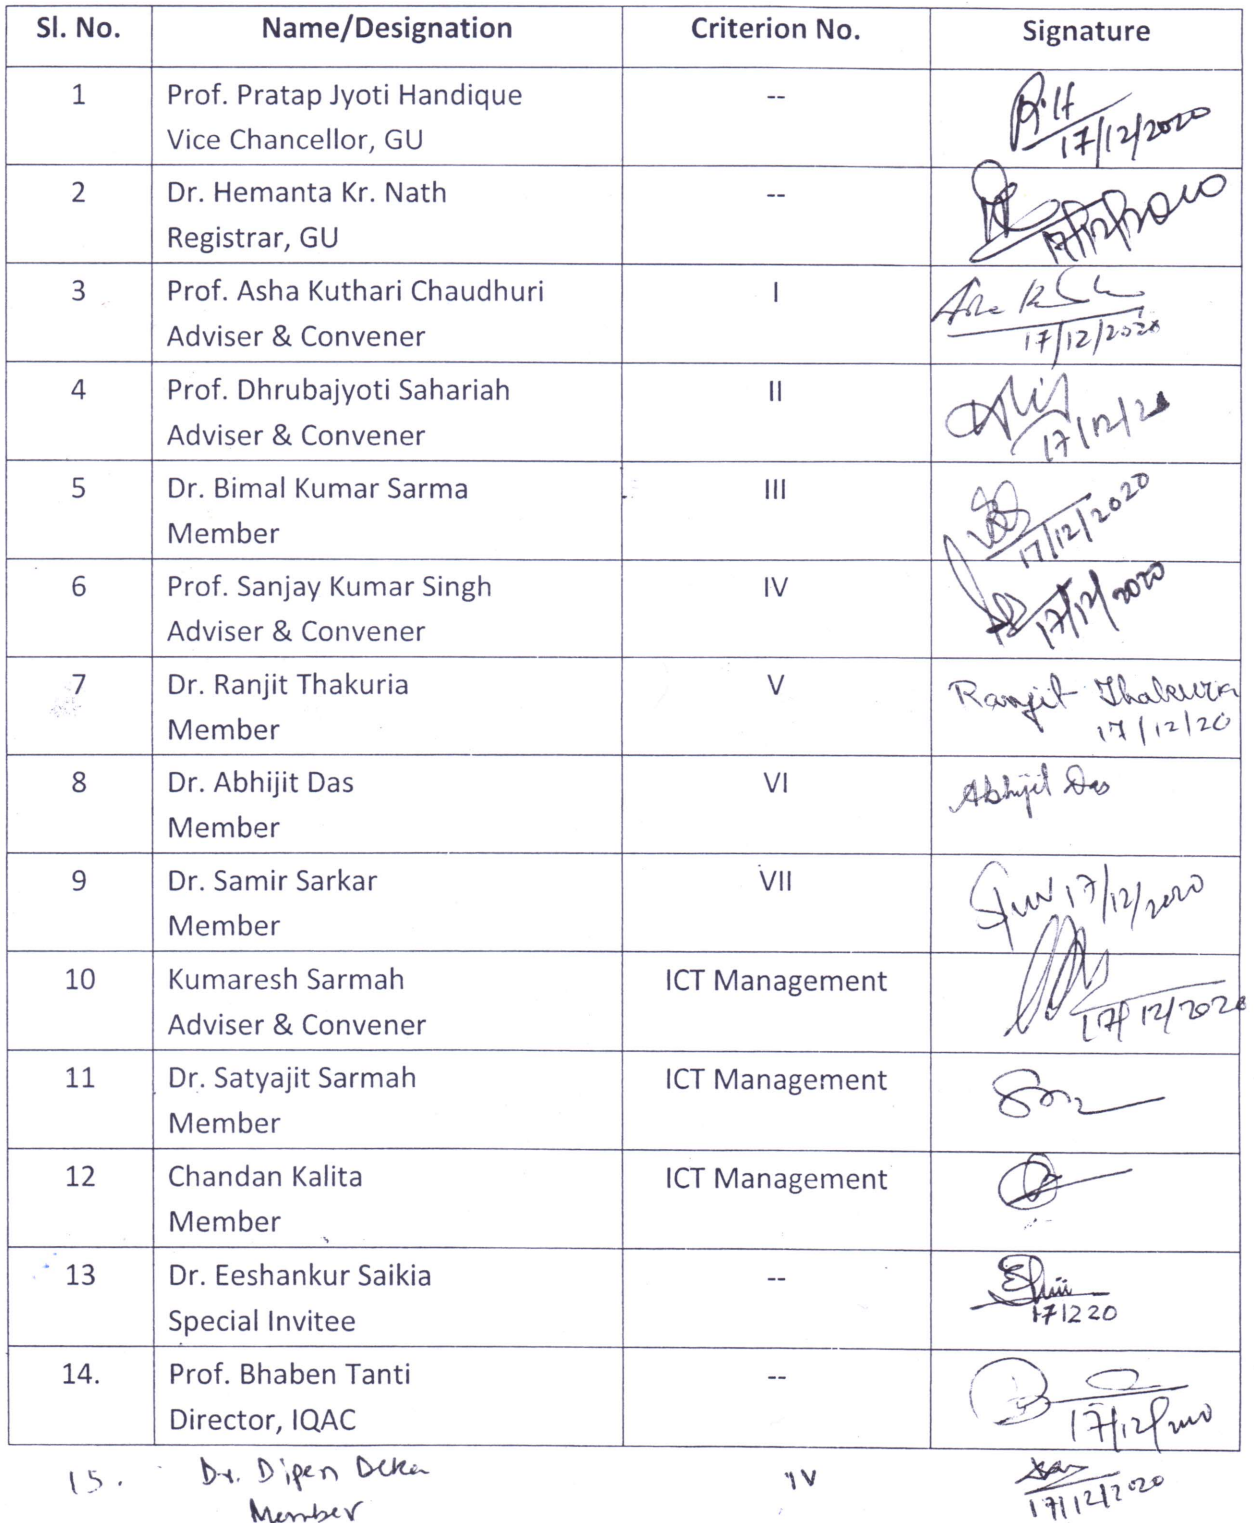 Sl. No. Name/Designation Criterion No. Signature
1 Prof. Pratap Jyoti Handique --
Vice Chancellor, GU
17/12/2020
2 Dr. Hemanta Kr. Nath --
Registrar, GU
17/12/2020
3 Prof. Asha Kuthari Chaudhuri I
Adviser & Convener
17/12/2020
4 Prof. Dhrubajyoti Sahariah II
Adviser & Convener
17/12/20
5 Dr. Bimal Kumar Sarma III
Member
17/12/2020
6 Prof. Sanjay Kumar Singh IV
Adviser & Convener
17/12/2020
7 Dr. Ranjit Thakuria V Ranjit Thakuria
Member 17/12/20
8 Dr. Abhijit Das VI Abhijit Das
Member
9 Dr. Samir Sarkar VII 17/12/2020
Member
10 Kumaresh Sarmah ICT Management
Adviser & Convener 17/12/2020
11 Dr. Satyajit Sarmah ICT Management
Member
12 Chandan Kalita ICT Management
Member
13 Dr. Eeshankur Saikia --
Special Invitee 171220
14. Prof. Bhaben Tanti --
Director, IQAC 17/12/2020
15. Dr. Dipen Deka IV
Member 17/12/2020